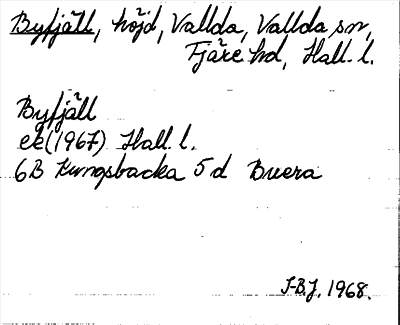 Byfjäll, höjd, Vallda, Vallda sn,
Fjäre hd, Hall. l.
Byfjäll
ek(1967) Hall. l.
6B Kungsbacka 5d Buera
I-B.J. 1968.